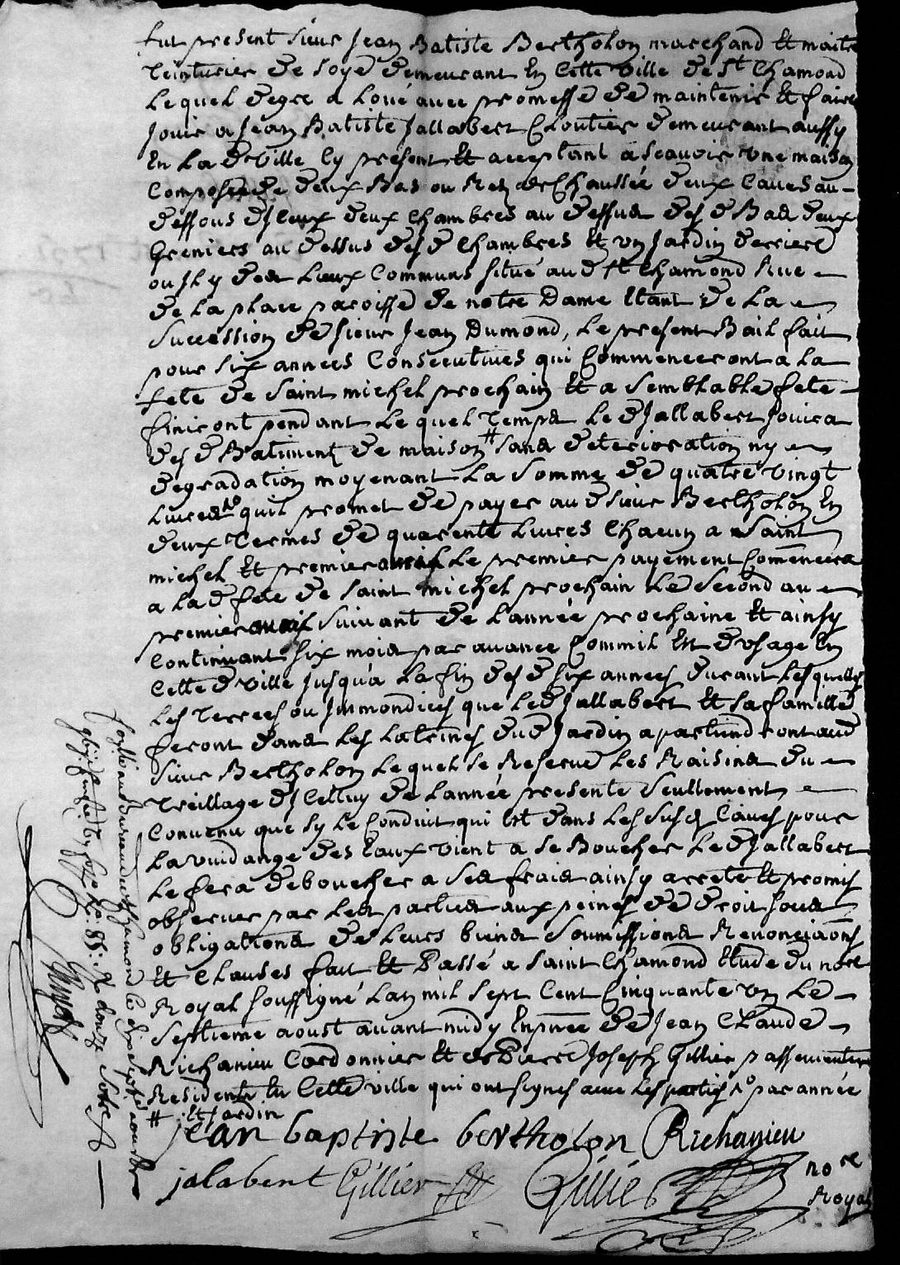 fut present sieur Jean Batiste Bertholon marchand et maitre
teinturier de soye demeurant En Cette Ville de St Chamond
Lequel degre a Loué avec promesse de maintenir et faire
Jouir a Jean Batiste Jallabert Cloutier demeurant aussy
En La d Ville Cy present et acceptant a scavoir Une maison
Composée de deux Bas ou Rez de Chaussée deux Caves au-
dessous d'Iceux deux Chambres au dessus des d Bas deux
Greniers au dessus des d Chambres Et un Jardin derriere
ou Il y a des Lieux Communs situé aud St Chamond Rue
de La place paroisse de notre Dame Etant de La
Succession de sieur Jean Dumond, Le present Bail fait
pour six années Consecutives qui Commenceront a La
fete de Saint michel prochain Et a semblable fete
finiront pendant Lequel temps Le d Jallabert Jouira
des d Batiment de maison # sans deterioration ny
degradation moyenant La somme de quatre vingt
Livres quil promet de payer au d sieur Bertholon En
deux termes de quarente Livres Chacun a Saint
michel Et premier avril Le premier payement Commencera
a La d fete de Saint michel prochain Le Second au
premier avril suivant de Lannée prochaine Et ainsy
Continuant six mois par avance Commil Est d'Usage En
Cette d Ville Jusqu'a La fin des d six années durant Lesquelles
Les Terres ou Immondices que Le d Jallabert Et sa famille
feront dans Les Latrines dud Jardin apartiendront aud
Sieur Bertholon Lequel se Reserve Les Raisins du
Treillage d'Iceluy de Lannée presente Seullement
Convenu que sy Le Conduit qui Est dans Les susd Caves pour
La vuidange des Eaux vient a se Boucher Le d Jallabert
Le fera deboucher a ses frais ainsy arreté Et promis
observer par Les parties aux peines de droit sous
obligations de Leurs biens Soumissions Renonciaons
Et Clauses fait Et Passé a Saint Chamond Etude du nore
Royal soussigné Lan mil sept Cent Cinquante Un Le
Septieme aoust avant midy En pnce de Jean Claude
Richanieu Cordonnier Et de Pierre Joseph Gillier passementier
Residents En Cette Ville qui ont signés avec Les parties par année
# Et Jardin
jean baptiste bertholon Richanieu
jalabert Gillier Gillié nore
Royal